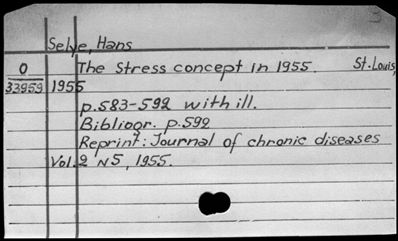 Selye, Hans
0 The Stress concept in 1955. St. Louis,
33959 1955
p.583-592 with ill.
Bibliogr. p.592
Reprint: Journal of chronic diseases
Vol.2 N5, 1955.